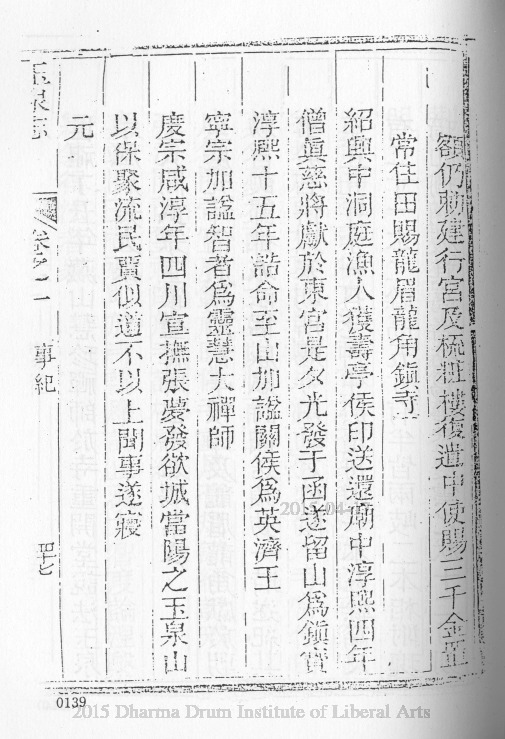 額仍勅建行宮及梳粧樓復遣中使賜三千金置
常住田賜龍眉龍角鎮寺
紹興中洞庭漁人獲壽亭侯印送還廟中淳熙四年
僧眞慈將獻於東宮是夕光發于函遂留山爲鎮寶
淳熙十五年誥命至山加謚關侯爲英濟王
寧宗加謚智者爲靈慧大禪師
慶宗咸淳年四川宣撫張夢發欲城當陽之玉泉山
以保聚流民賈似道不以上聞事遂寢
元
玉泉志 卷之二 事紀 四十七
0139
2015 Dharma Drum Institute of Liberal Arts